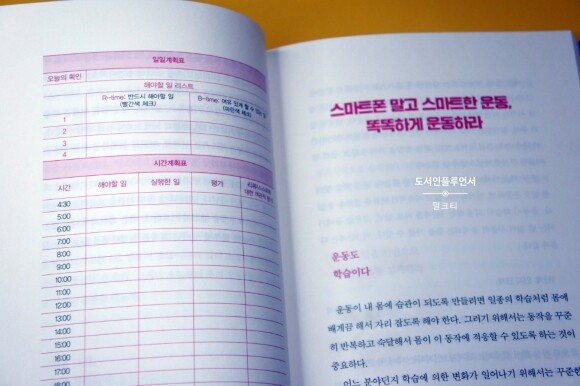 일일계획표
오늘의 확인
해야할 일 리스트
R-time: 반드시 해야할 일 B-time: 여유 있게 할 수 있는 일
(빨간색 체크) (파란색 체크)
1
2
3
4
시간계획표
시간 해야할 일 실행한 일 평가
4:30
5:00
6:00
7:00
8:00
9:00
10:00
11:00
12:00
13:00
14:00
15:00
16:00
17:00
18:00
스마트폰 말고 스마트한 운동,
똑똑하게 운동하라
도서인플루언서
밀크티
운동도
학습이다
운동이 내 몸에 습관이 되도록 만들려면 일종의 학습처럼 몸에
배게끔 해서 자리 잡도록 해야 한다. 그러기 위해서는 동작을 꾸준
히 반복하고 숙달해서 몸이 이 동작에 적응할 수 있도록 하는 것이
중요하다.
어느 분야던지 학습에 의한 변화가 일어나기 위해서는 꾸준한